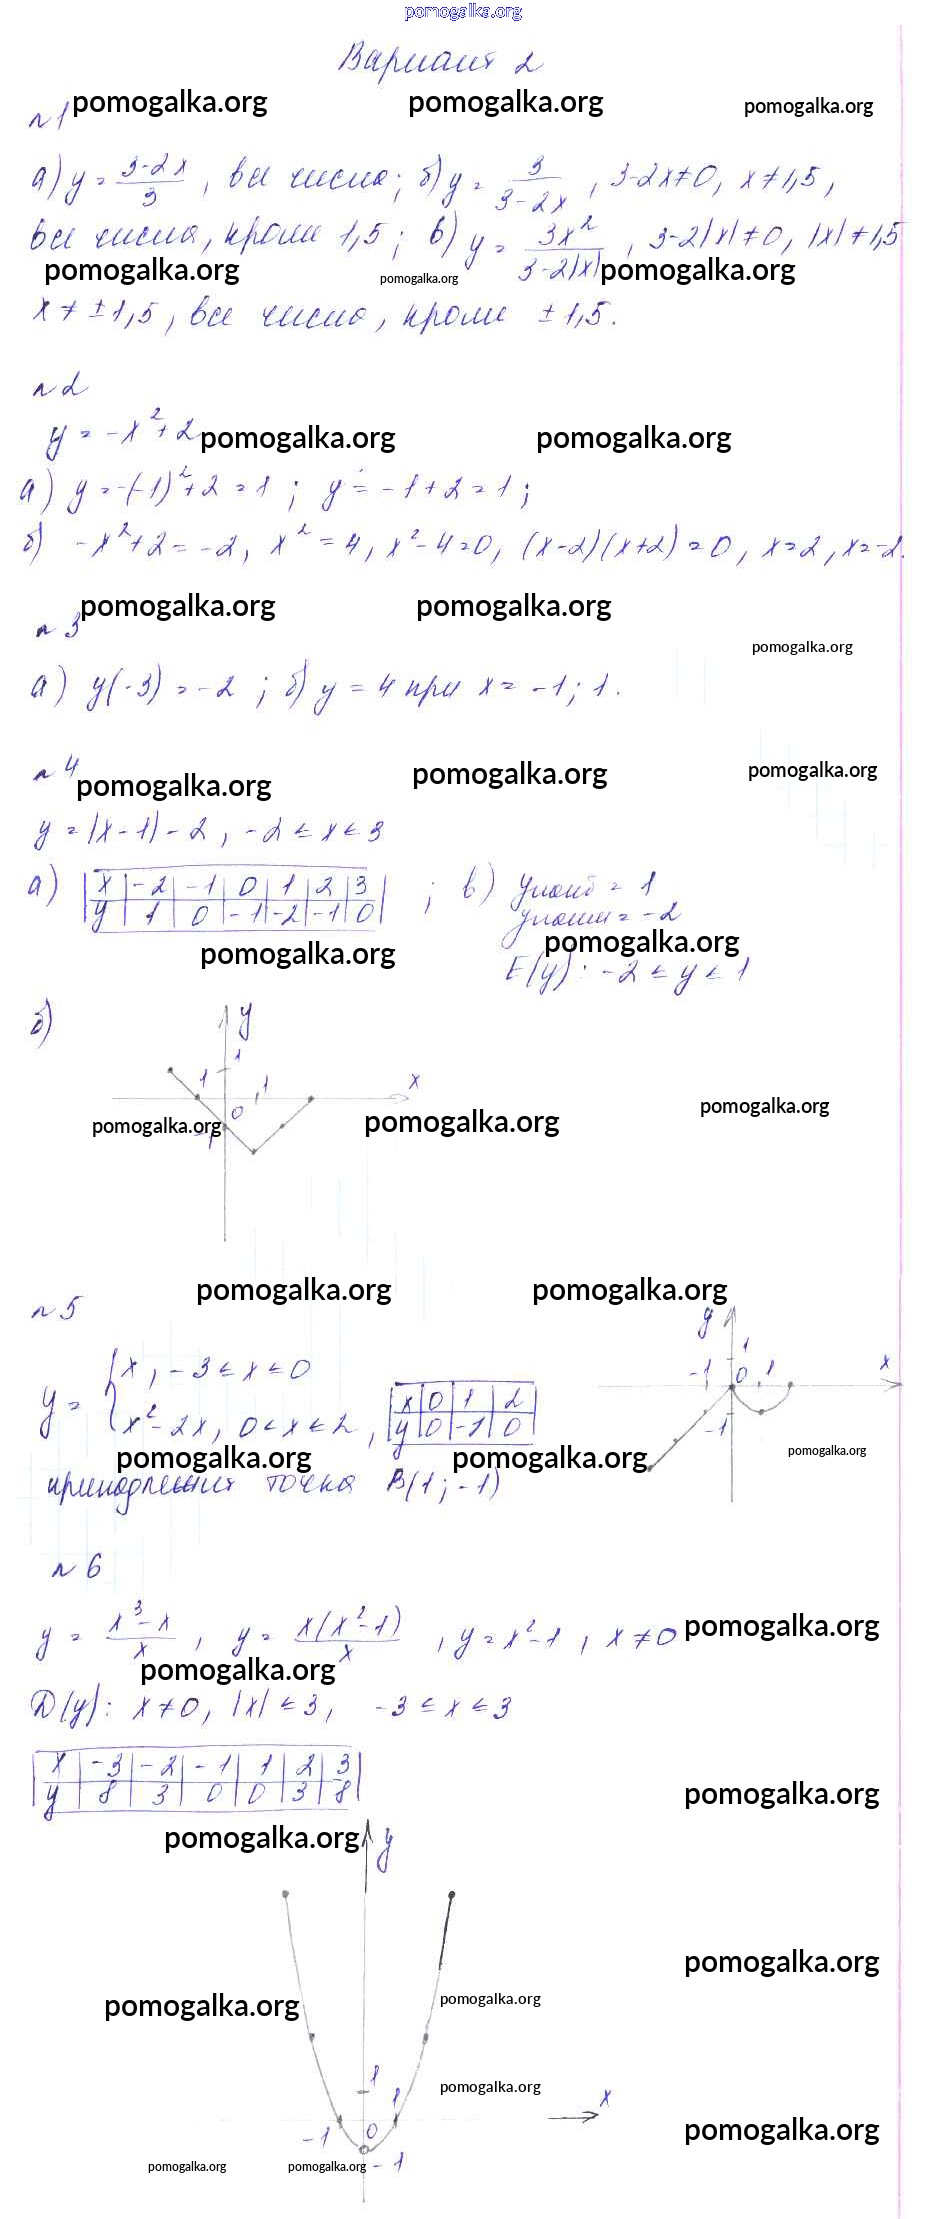 pomogalka.org
Вариант 2
pomogalka.org pomogalka.org pomogalka.org
n 1
а) y = (3-2x)/3 , все числа; б) y = 3/(3-2x) , 3-2x≠0, x≠1,5,
все числа, кроме 1,5; в) y = 3x²/(3-2|x|) , 3-2|x|≠0, |x|≠1,5
pomogalka.org pomogalka.org pomogalka.org
x ≠ ±1,5, все числа, кроме ±1,5.
n 2
y = -x²+2
pomogalka.org pomogalka.org
а) y = -(-1)²+2 = 1 ; y = -1+2 = 1 ;
б) -x²+2 = -2, x² = 4, x²-4=0, (x-2)(x+2)=0, x=2, x=-2.
pomogalka.org pomogalka.org
n 3
pomogalka.org
а) y(-3) = -2 ; б) y = 4 при x = -1; 1.
n 4
pomogalka.org pomogalka.org pomogalka.org
y = |x-1|-2 , -2 ≤ x ≤ 3
а) x -2 -1 0 1 2 3 ; в) yнаиб = 1
y 1 0 -1 -2 -1 0 yнаим = -2
pomogalka.org pomogalka.org
E(y): -2 ≤ y ≤ 1
б) y
1
1 1 x
0
pomogalka.org pomogalka.org pomogalka.org
-1
pomogalka.org pomogalka.org
n 5
y
1
-1 0 1 x
-1
y = { x , -3 ≤ x ≤ 0
x²-2x, 0 < x ≤ 2, x 0 1 2
y 0 -1 0
pomogalka.org pomogalka.org pomogalka.org
принадлежит точка B(1; -1)
n 6
y = (x³-x)/x , y = x(x²-1)/x , y = x²-1 , x ≠ 0
pomogalka.org
pomogalka.org
D(y): x≠0, |x| ≤ 3, -3 ≤ x ≤ 3
x -3 -2 -1 1 2 3
y 8 3 0 0 3 8
pomogalka.org
pomogalka.org
y
pomogalka.org
pomogalka.org pomogalka.org
1
pomogalka.org
1 x
-1 0
pomogalka.org
-1
pomogalka.org pomogalka.org